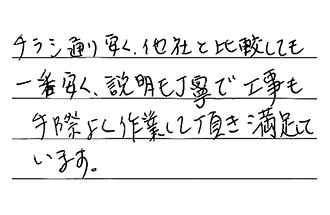 チラシ通り安く、他社と比較しても
一番安く、説明も丁寧で工事も
手際よく作業して頂き満足して
います。